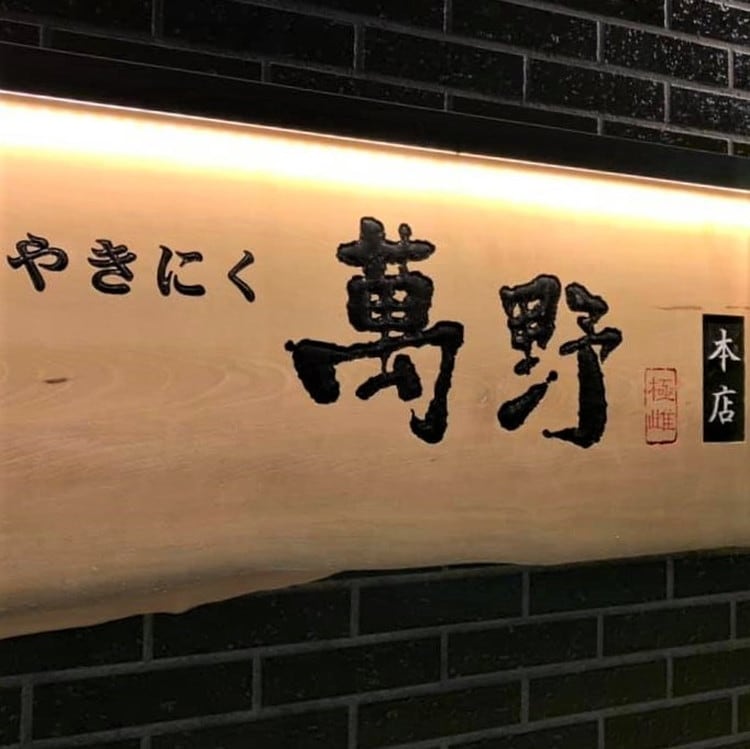 やきにく
萬野
極雌
本店